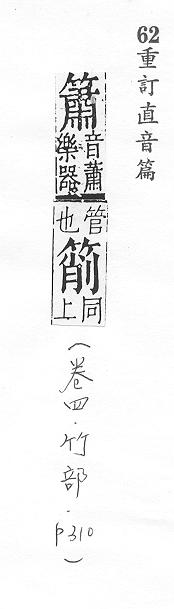 62重訂直音篇
簫
音蕭管
樂器也
箾
同
上
（卷四．竹部．p310）